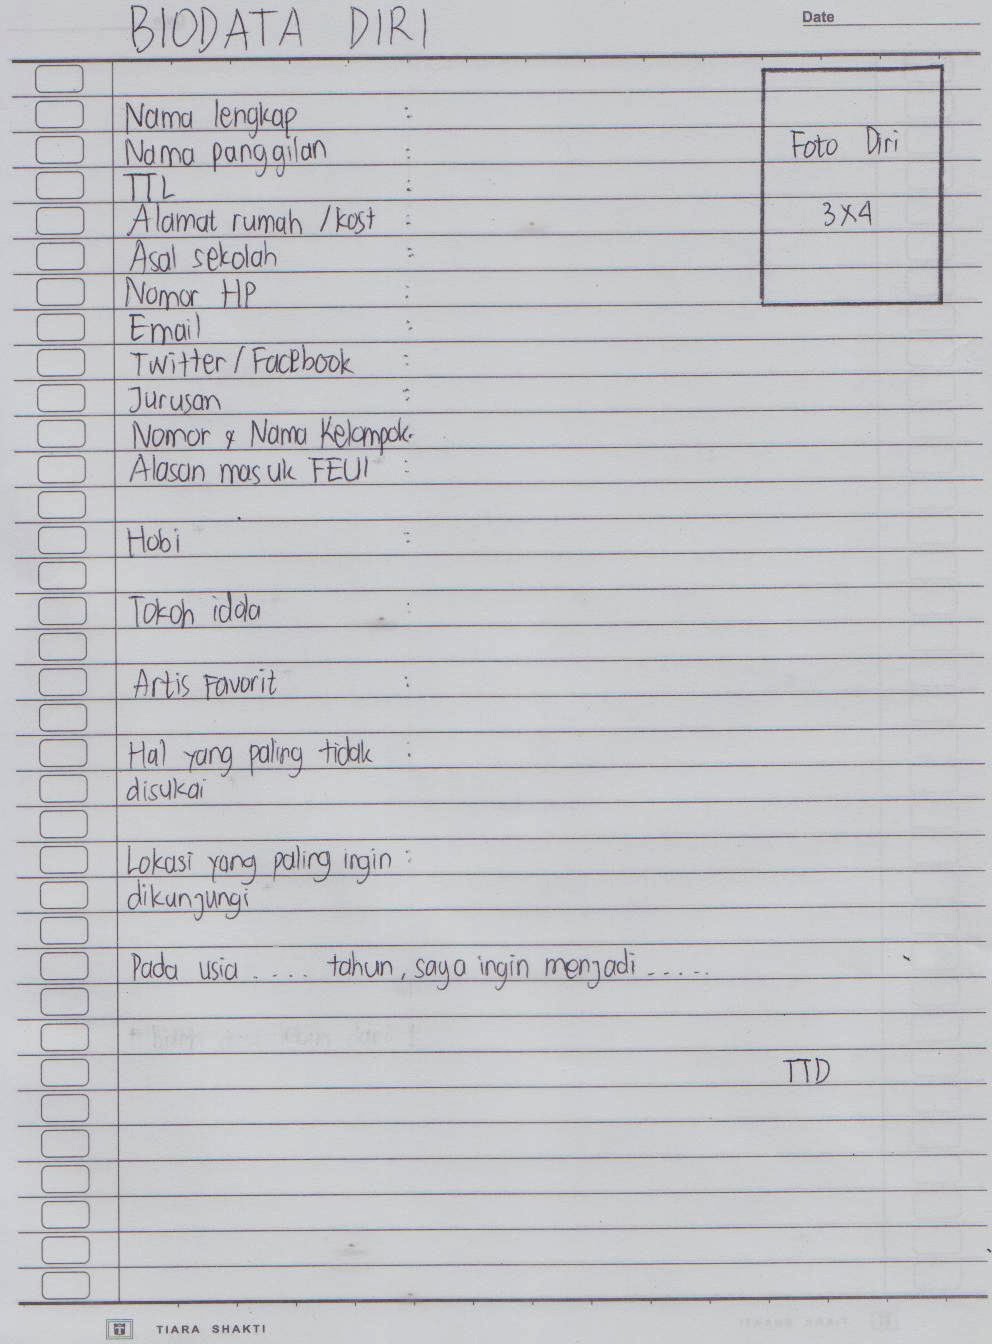 BIODATA DIRI
Date
Nama lengkap :
Nama panggilan :
TTL :
Alamat rumah / kost :
Asal sekolah :
Nomor HP :
Email :
Twitter / Facebook :
Jurusan :
Nomor & Nama Kelompok :
Alasan masuk FEUI :
Hobi :
Tokoh idola :
Artis Favorit :
Hal yang paling tidak :
disukai
Lokasi yang paling ingin :
dikunjungi
Pada usia .... tahun, saya ingin menjadi .....
TTD
Foto Diri
3x4
TIARA SHAKTI